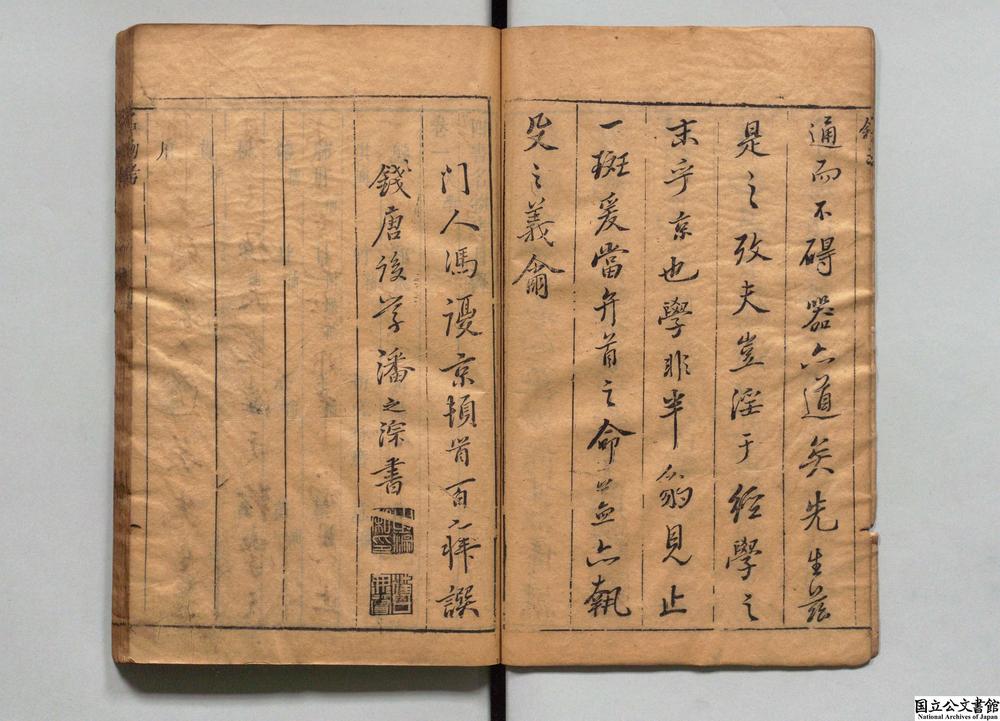 通而不碍器亦道矣先生茲
是之攷夫豈淫于經學之
末乎京也學非半豹見止
一斑爰當弁首之命亦執
殳之義
门人馮復京頓首百拜譔
錢唐後学潘之淙書
名物考
国立公文書館
National Archives of Japan